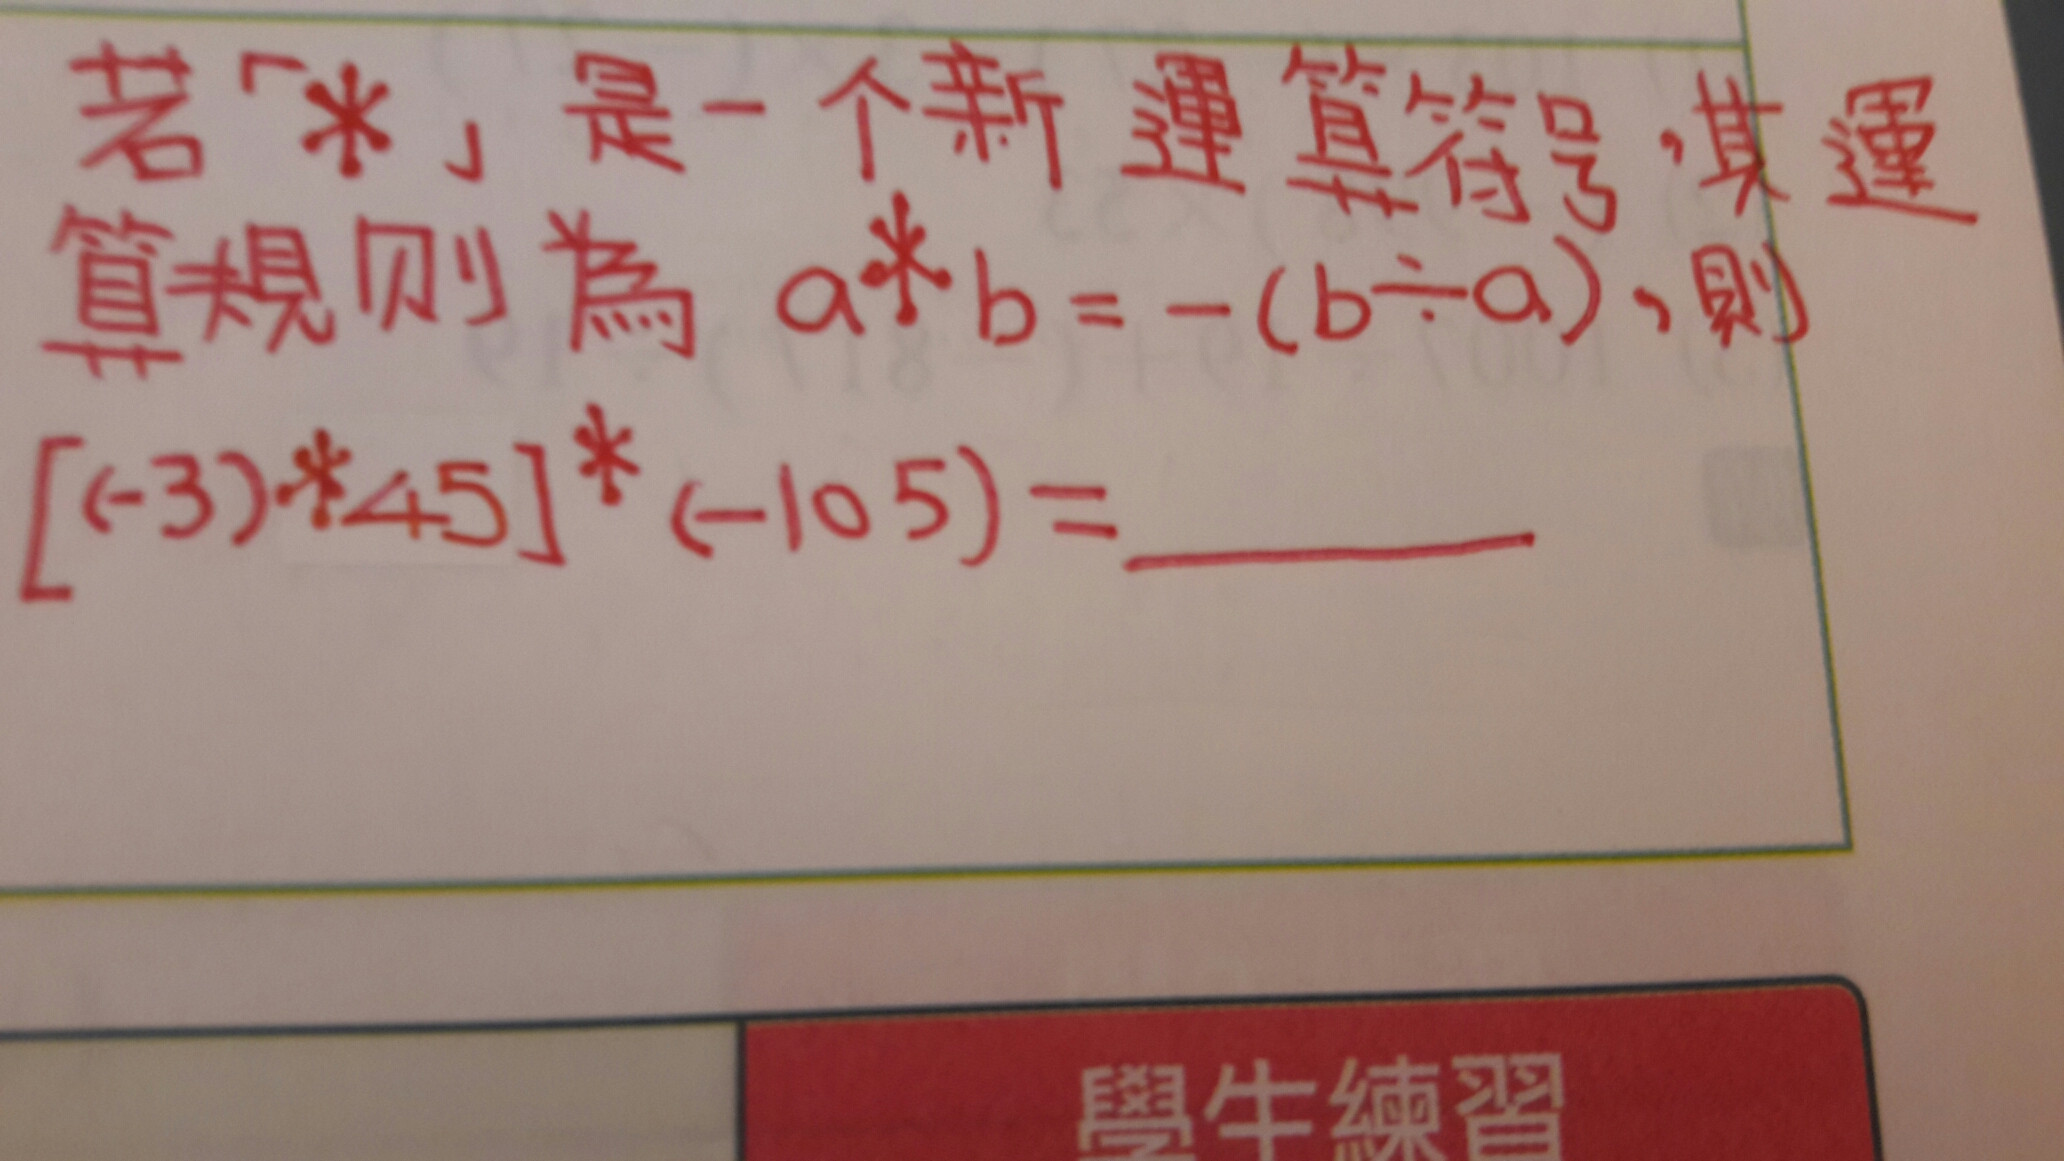 若「*」是一个新運算符号,其運
算規则為 a*b=-(b÷a),則
[(-3)*45]*(-105)=
學生練習